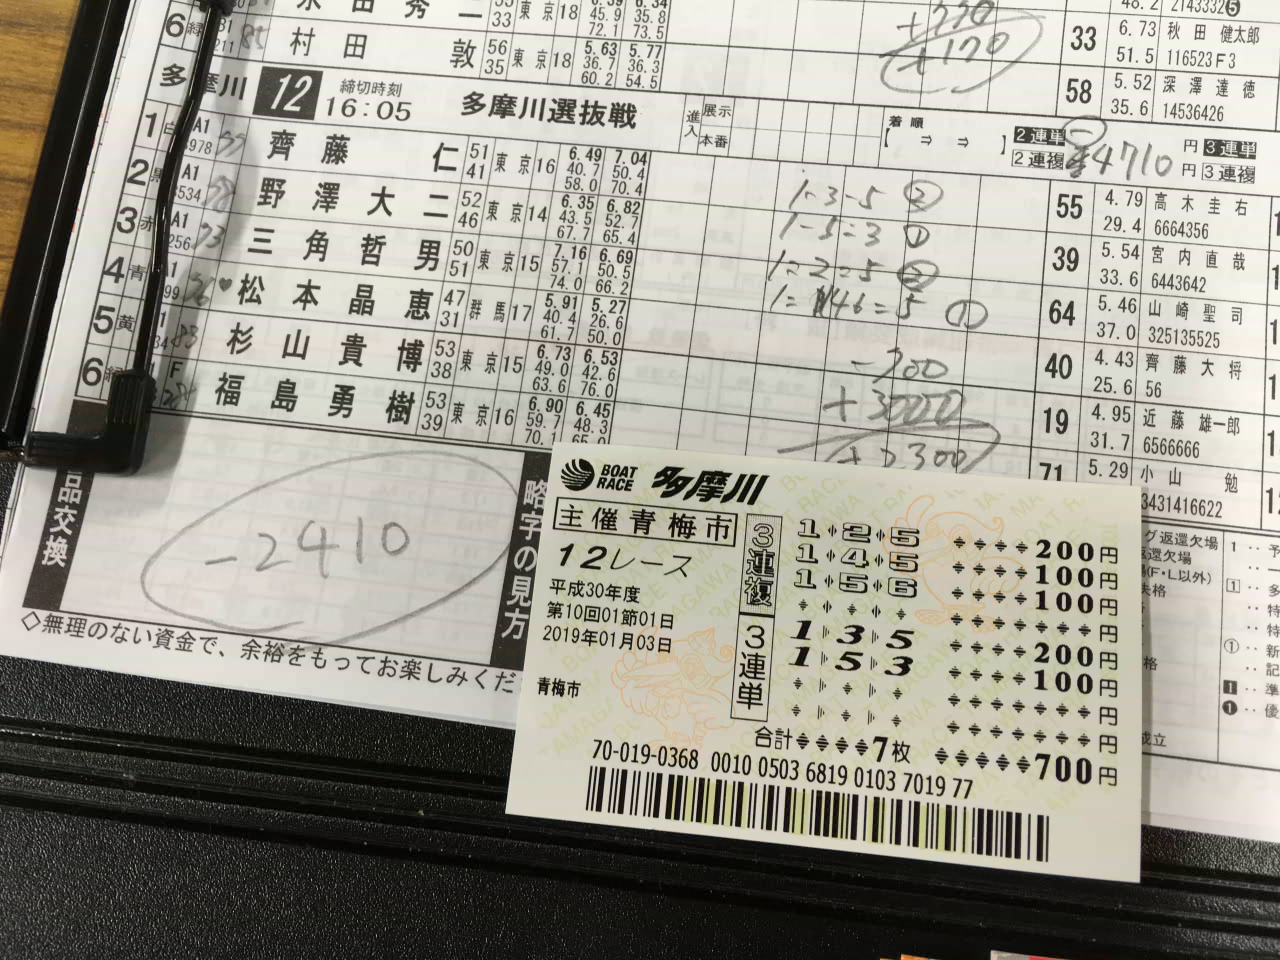 村田 敦 56 35 東京18 5.63 36.7 60.2 5.77 36.3 54.5
+170
33 6.73 51.5 秋田 健太郎 116523F3
58 5.52 35.6 深澤 達徳 14536426
多摩川 12 締切時刻 16:05 多摩川選抜戦
進入 展示 本番
着順 【 ⇒ ⇒ 】
2連単 円 3連単
2連複 4710 円 3連複
1 白 A1 齊藤 仁 51 41 東京16 6.49 40.7 58.0 7.04 50.4 70.4
2 黒 A1 野澤大二 52 46 東京14 6.35 43.5 67.7 6.82 52.7 65.4
3 赤 A1 三角哲男 50 51 東京15 7.16 57.1 74.0 6.69 50.5 66.2
4 青 ♥松本晶恵 47 31 群馬17 5.91 40.4 61.7 5.27 26.6 50.0
5 黄 杉山貴博 53 38 東京15 6.73 49.0 63.6 6.53 42.6 76.0
6 緑 F 福島勇樹 53 39 東京16 6.90 59.7 70.1 6.45 48.3
1-3-5 ②
1-5=3 ①
1=2=5 ②
1=46=5 ①
-700
+3000
+2300
55 4.79 29.4 高木圭右 6664356
39 5.54 33.6 宮内直哉 6443642
64 5.46 37.0 山崎聖司 325135525
40 4.43 25.6 齊藤大将 56
19 4.95 31.7 近藤雄一郎 6566666
71 5.29 小山 勉 3431416622
品交換
-2410
略字の見方
◇無理のない資金で、余裕をもってお楽しみくだ
BOAT RACE 多摩川
主催青梅市
12レース
平成30年度
第10回01節01日
2019年01月03日
青梅市
3連複
1 2 5 200円
1 4 5 100円
1 5 6 100円
円
3連単
1 3 5 200円
1 5 3 100円
円
円
合計 7枚 700円
70-019-0368 0010 0503 6819 0103 7019 77